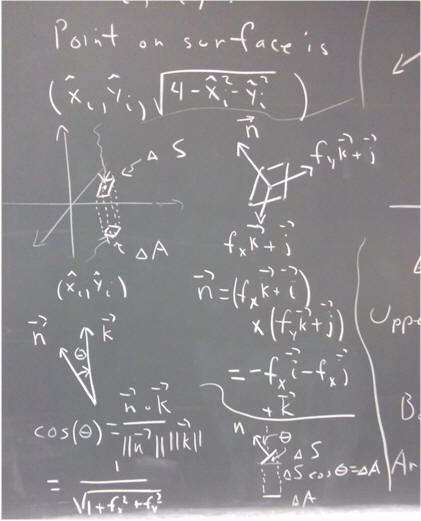 Point on surface is
(x̂ᵢ, ŷᵢ, √(4 - x̂ᵢ² - ŷᵢ²))
ΔS
ΔA
(x̂ᵢ, ŷᵢ)
n⃗
f_y k⃗ + j⃗
f_x k⃗ + j⃗
n⃗ = (f_x k⃗ + i⃗)
× (f_y k⃗ + j⃗)
= -f_x i⃗ - f_x j⃗
+ k⃗
n⃗ k⃗
θ
cos(θ) = n⃗ · k⃗ / ||n⃗|| ||k⃗||
= 1 / √(1 + f_x² + f_y²)
n θ
ΔS
ΔS cos θ = ΔA
ΔA
Uppe
B
Ar